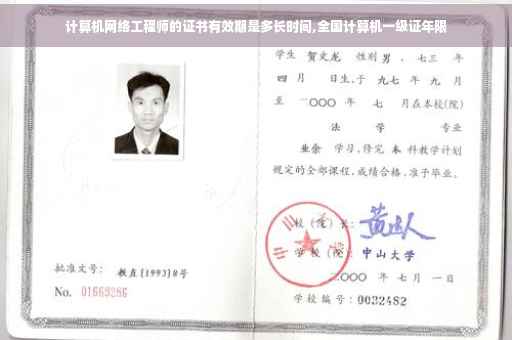 计算机网络工程师的证书有效期是多长时间,全国计算机一级证年限
学生 贺文龙 性别 男 、七三 年
四 月 日生,于 九七 年 九 月
至 二〇〇〇 年 七 月在本校(院)
法 学 专业
业余 学习,修完 本 科教学计划
规定的全部课程,成绩合格,准予毕业。
校(院)长:
学 校(院): 中山大学
二〇〇〇 年 七 月 一 日
学校编号: 0032482
批准文号: 教直(1993)8号
No. 01669286